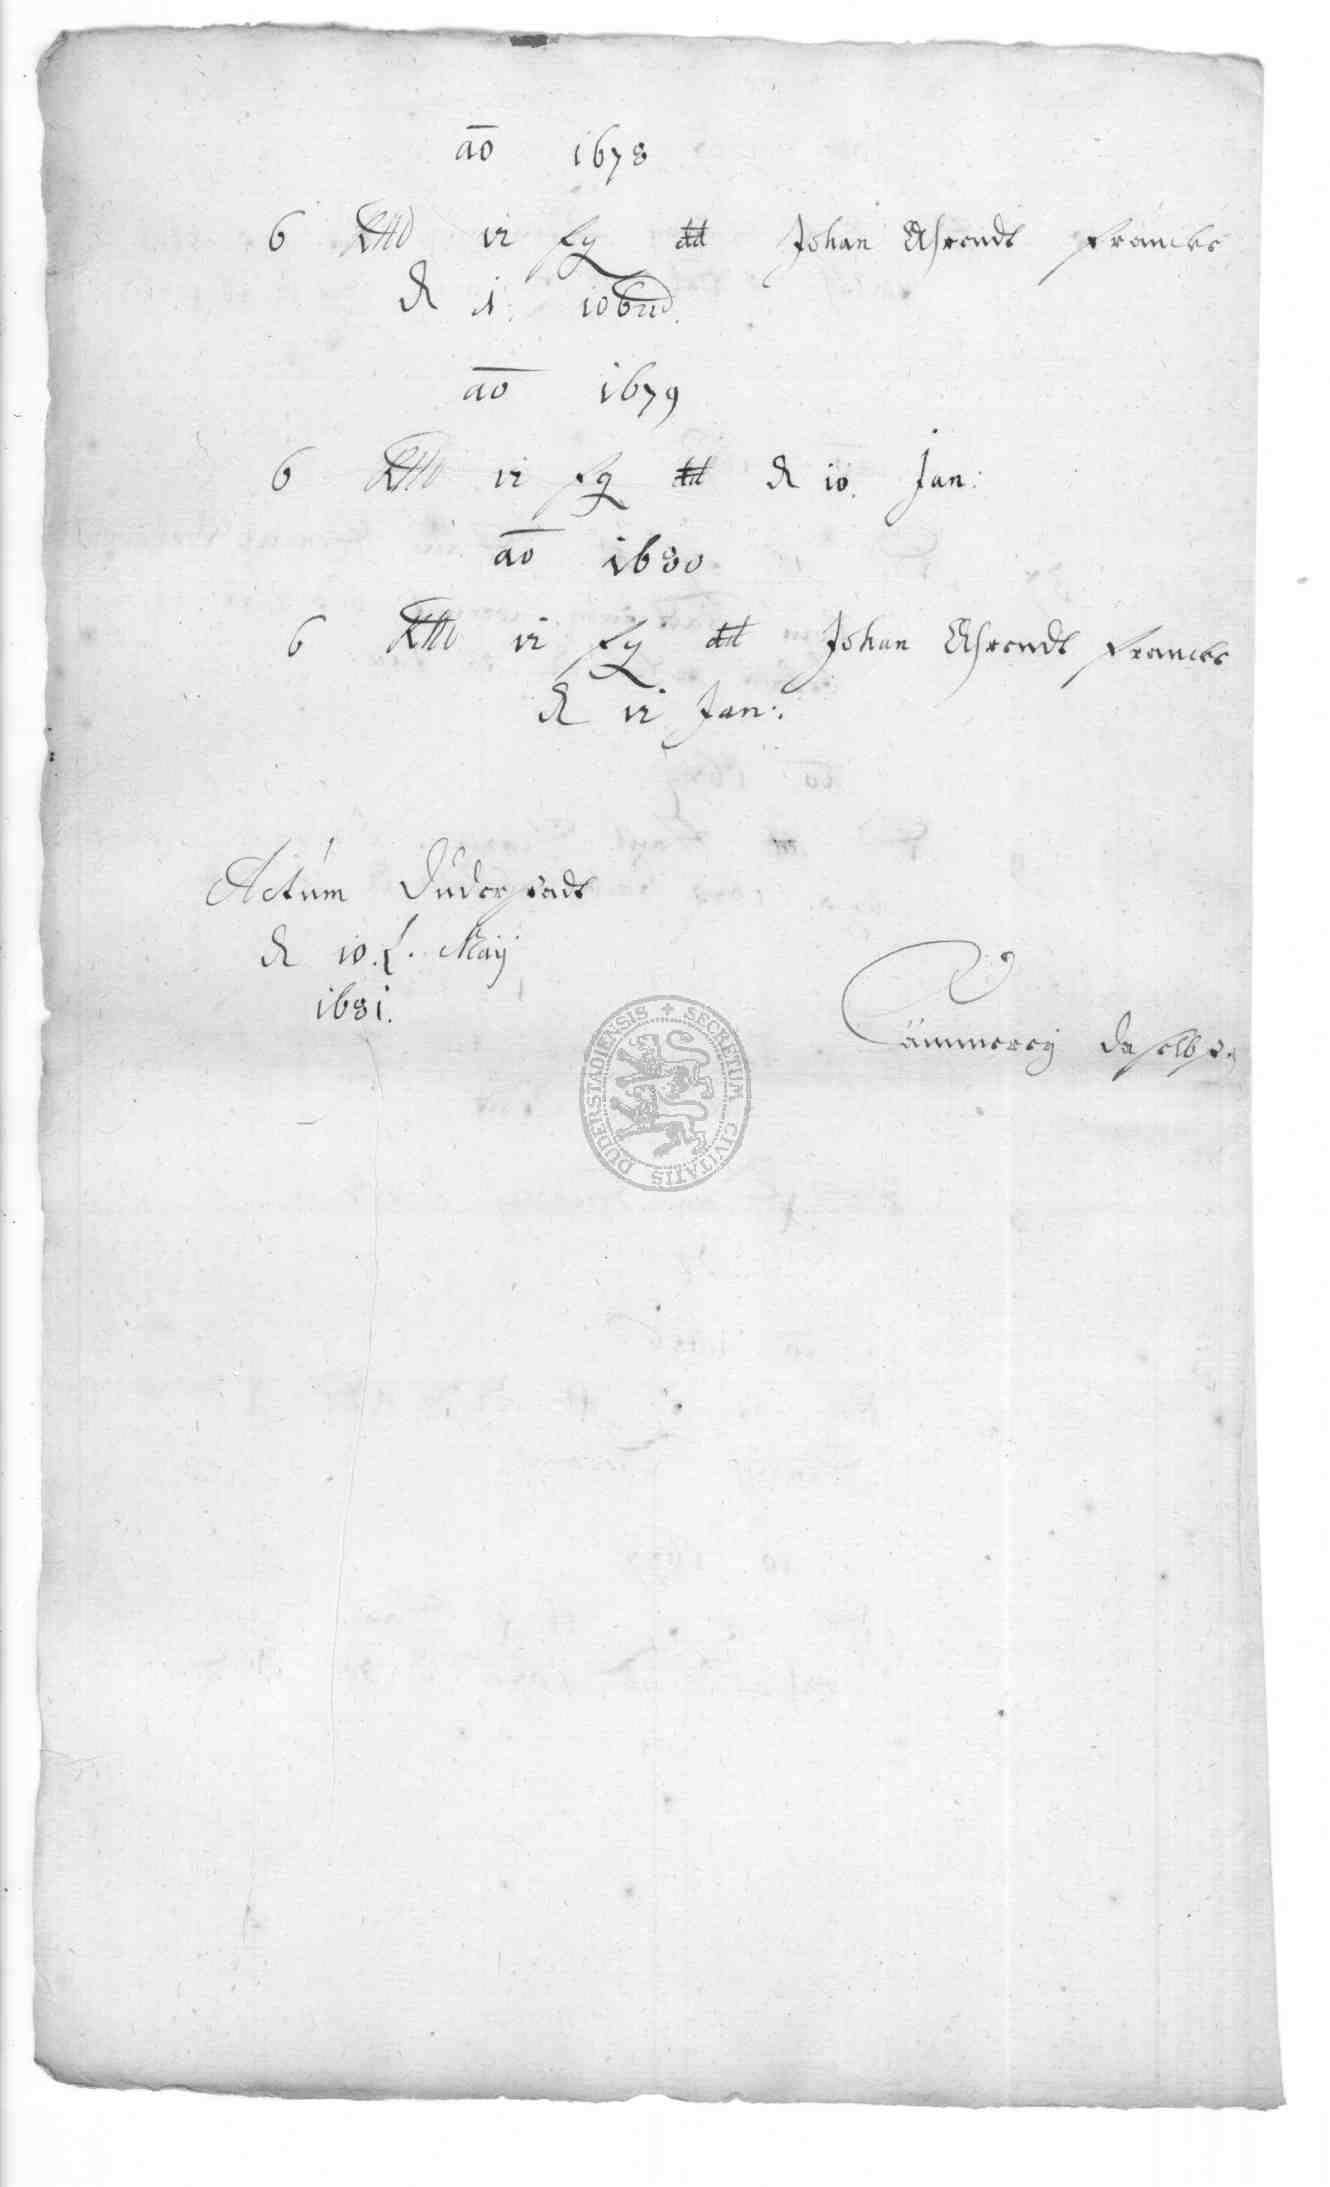 ao 1678
6 Rthlr 12 ggr dd Johan Ahrendt Francke
d 1. 10bris
ao 1679
6 Rthlr 12 ggr dd d 10. Jan:
ao 1680
6 Rthlr 12 ggr dd Johan Ahrendt Francke
d 12 Jan:
Actum Duderstadt
d 10. Maij
1681.
Cämmerey daselbst
SECRETUM CIVITATIS DUDERSTADIENSIS